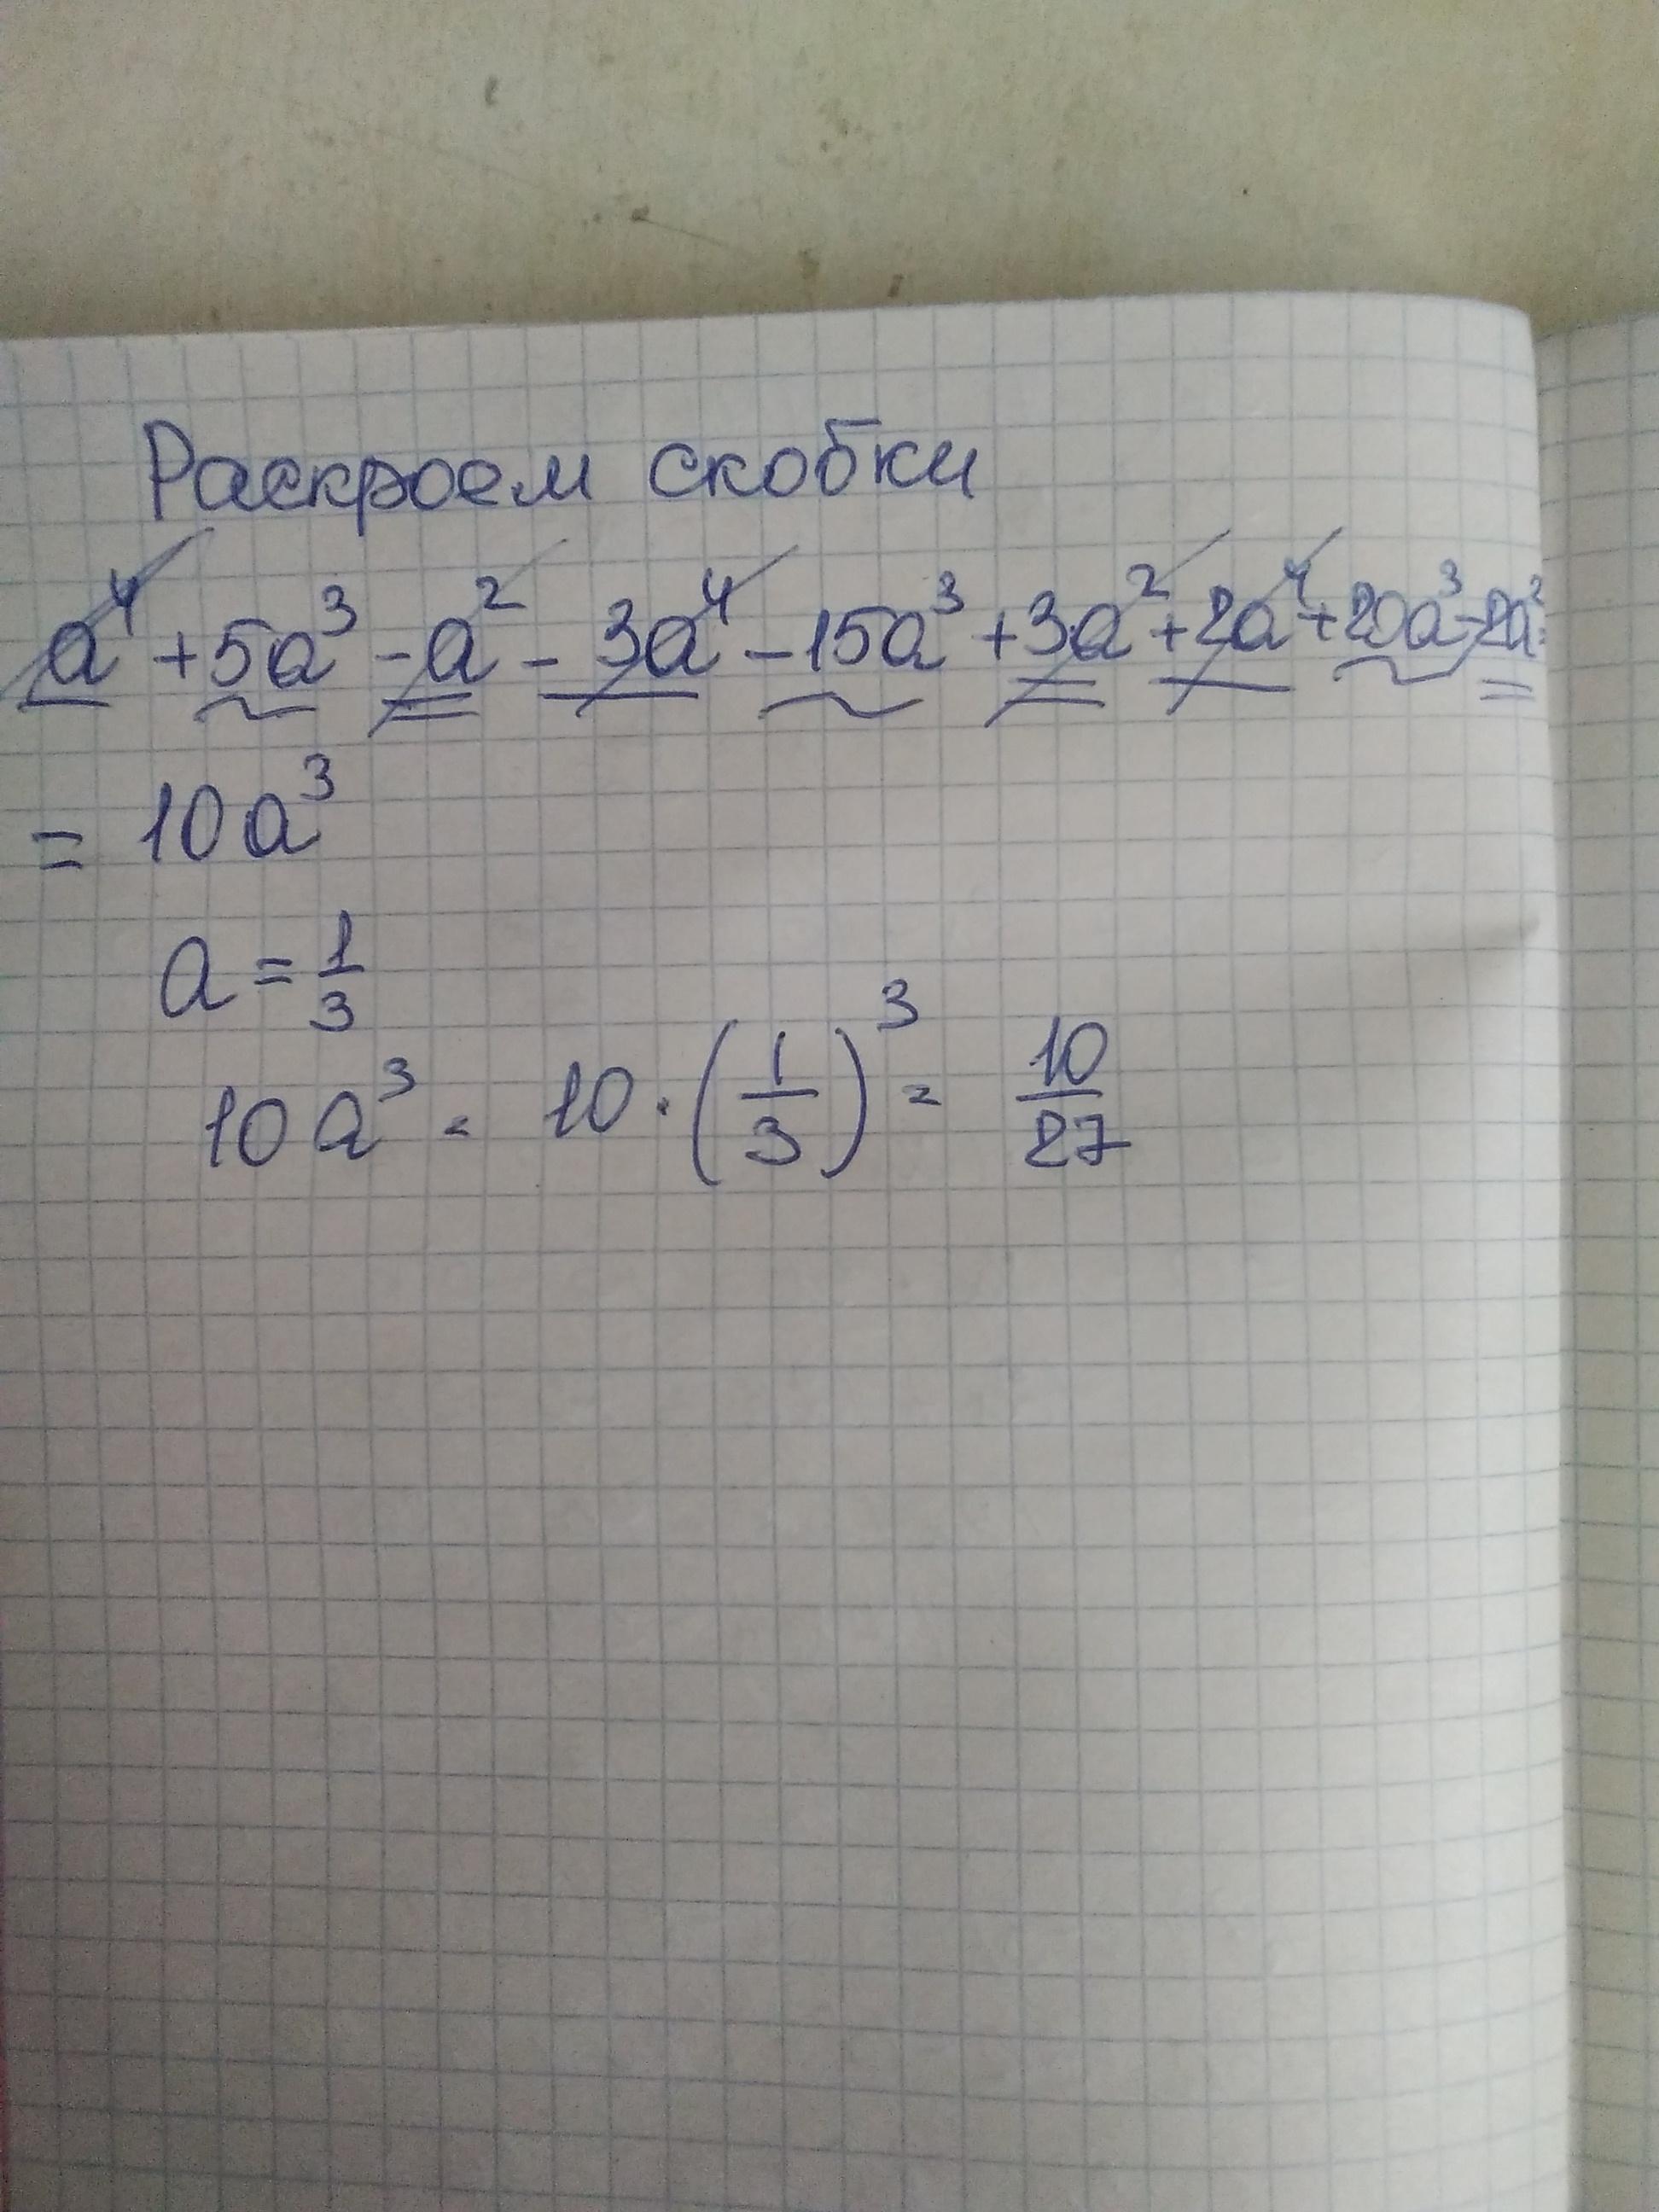 Раскроем скобки
a⁴ + 5a³ - a² - 3a⁴ - 15a³ + 3a² + 2a⁴ + 20a³ - 2a² =
= 10a³
a = 1/3
10a³ = 10 · (1/3)³ = 10/27